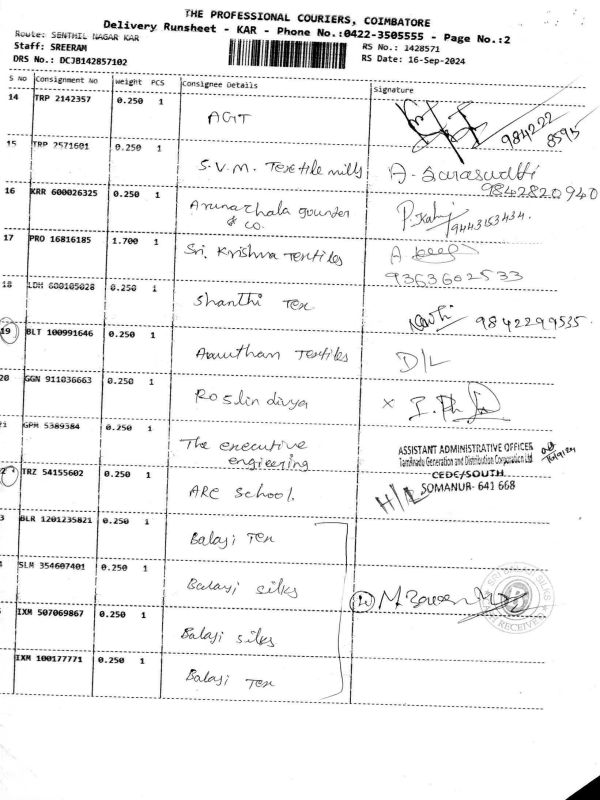 THE PROFESSIONAL COURIERS, COIMBATORE
Delivery Runsheet - KAR - Phone No.:0422-3505555 - Page No.:2
Route: SENTHIL NAGAR KAR
RS No.: 1428571
Staff: SREERAM
RS Date: 16-Sep-2024
DRS No.: DCJB142857102
S No Consignment No Weight PCS Consignee Details Signature
14 TRP 2142357 0.250 1
AGT
984222
8595
15 TRP 2571601 0.250 1
S.V.M. Textile mills
9842820940
16 KRR 600026325 0.250 1
Arunachala gounder
& co.
9443153434.
17 PRO 16816185 1.700 1
Sri. Krishna Textiles
9363602533
18 LDH 600105028 0.250 1
Shanthi Tex
9842299535.
19 BLT 100991646 0.250 1
Textiles D/L
20 GGN 911036663 0.250 1
Roslin divya X
21 GPM 5389384 0.250 1
The executive
engieering
ASSISTANT ADMINISTRATIVE OFFICER
Tamilnadu Generation and Distribution Corporation Ltd
CEDC/SOUTH
SOMANUR- 641 668
TRZ 54155602 0.250 1
ARC School. H/L
3 BLR 1201235821 0.250 1
Balaji Tex
SLM 354607401 0.250 1
Balaji silks
IXM 507069867 0.250 1
Balaji silks
IXM 100177771 0.250 1
Balaji Tex